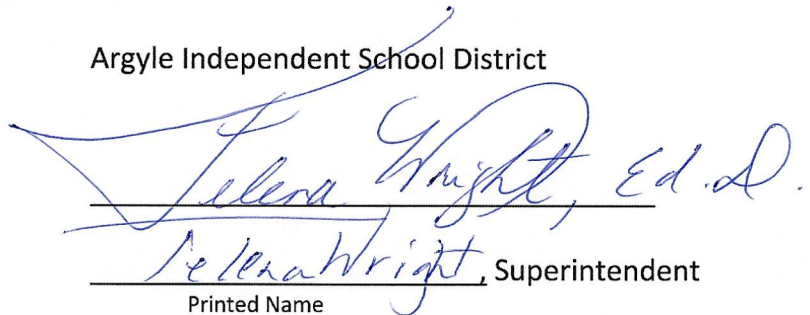 Argyle Independent School District
Telena Wright, Ed.D.
Telena Wright, Superintendent
Printed Name